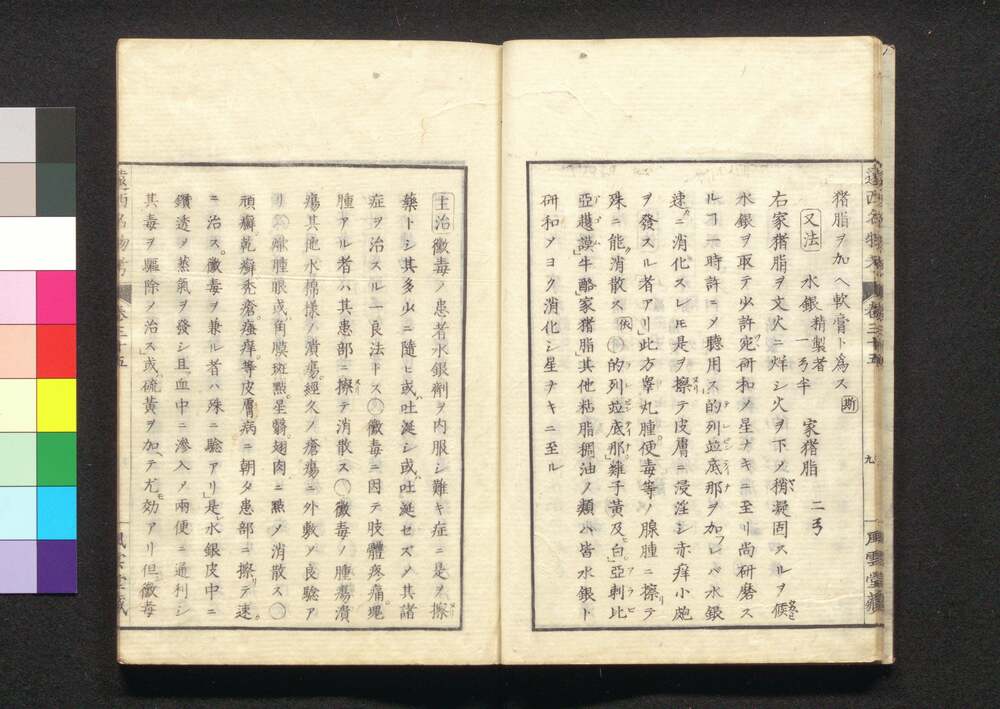 猪脂ヲ加ヘ軟膏ト爲ス 斯
又法 水銀 精製者 一ヲ半 家猪脂 二ヲ
右家猪脂ヲ文火ニ烊シ火ヲ下メ稍凝固スルヲ候
水銀ヲ取テ少許宛研和メ星ナキニ至リ尚研磨ス
ルコ一時許ニメ聽用ス的列竝底那ヲ加フレバ水銀
速ニ消化スレ𪜈是ヲ擦テ皮膚ニ浸淫シ赤痒小皰
ヲ發スル者アリ此方睾丸腫便毒等ノ腺腫ニ擦テ
殊ニ能消散ス 的列竝底那雞子黃及白亞剌比
亞護謨牛酪家猪脂其他粘脂稠油ノ類ハ皆水銀ト
研和メヨク消化シ星ナキニ至ル
遠西名物考 卷三十五 九 風雲堂藏
主治黴毒ノ患者水銀劑ヲ内服シ難キ症ニ是ヲ擦
藥トシ其多少ニ隨ヒ或吐涎シ或吐涎セズメ其諸
症ヲ治スル一良法トス 黴毒ニ因テ肢體疼痛塊
腫アル者ハ其患部ニ擦テ消散ス 黴毒ノ腫瘍潰
瘍其他水棉樣ノ潰瘍經久ノ瘡瘍ニ外敷メ良驗ア
リ 腫眼或角膜斑點星翳翅肉ニ點メ消散ス
頑癬乾癬禿瘡瘙痒等皮膚病ニ朝夕患部ニ擦テ速
ニ治ス黴毒ヲ兼ル者ハ殊ニ驗アリ是水銀皮中ニ
鑽透メ蒸氣ヲ發シ且血中ニ滲入メ兩便ニ通利シ
其毒ヲ驅除メ治ス或硫黃ヲ加テ尤効アリ但黴毒
遠西名物考 卷三十五 風雲堂藏